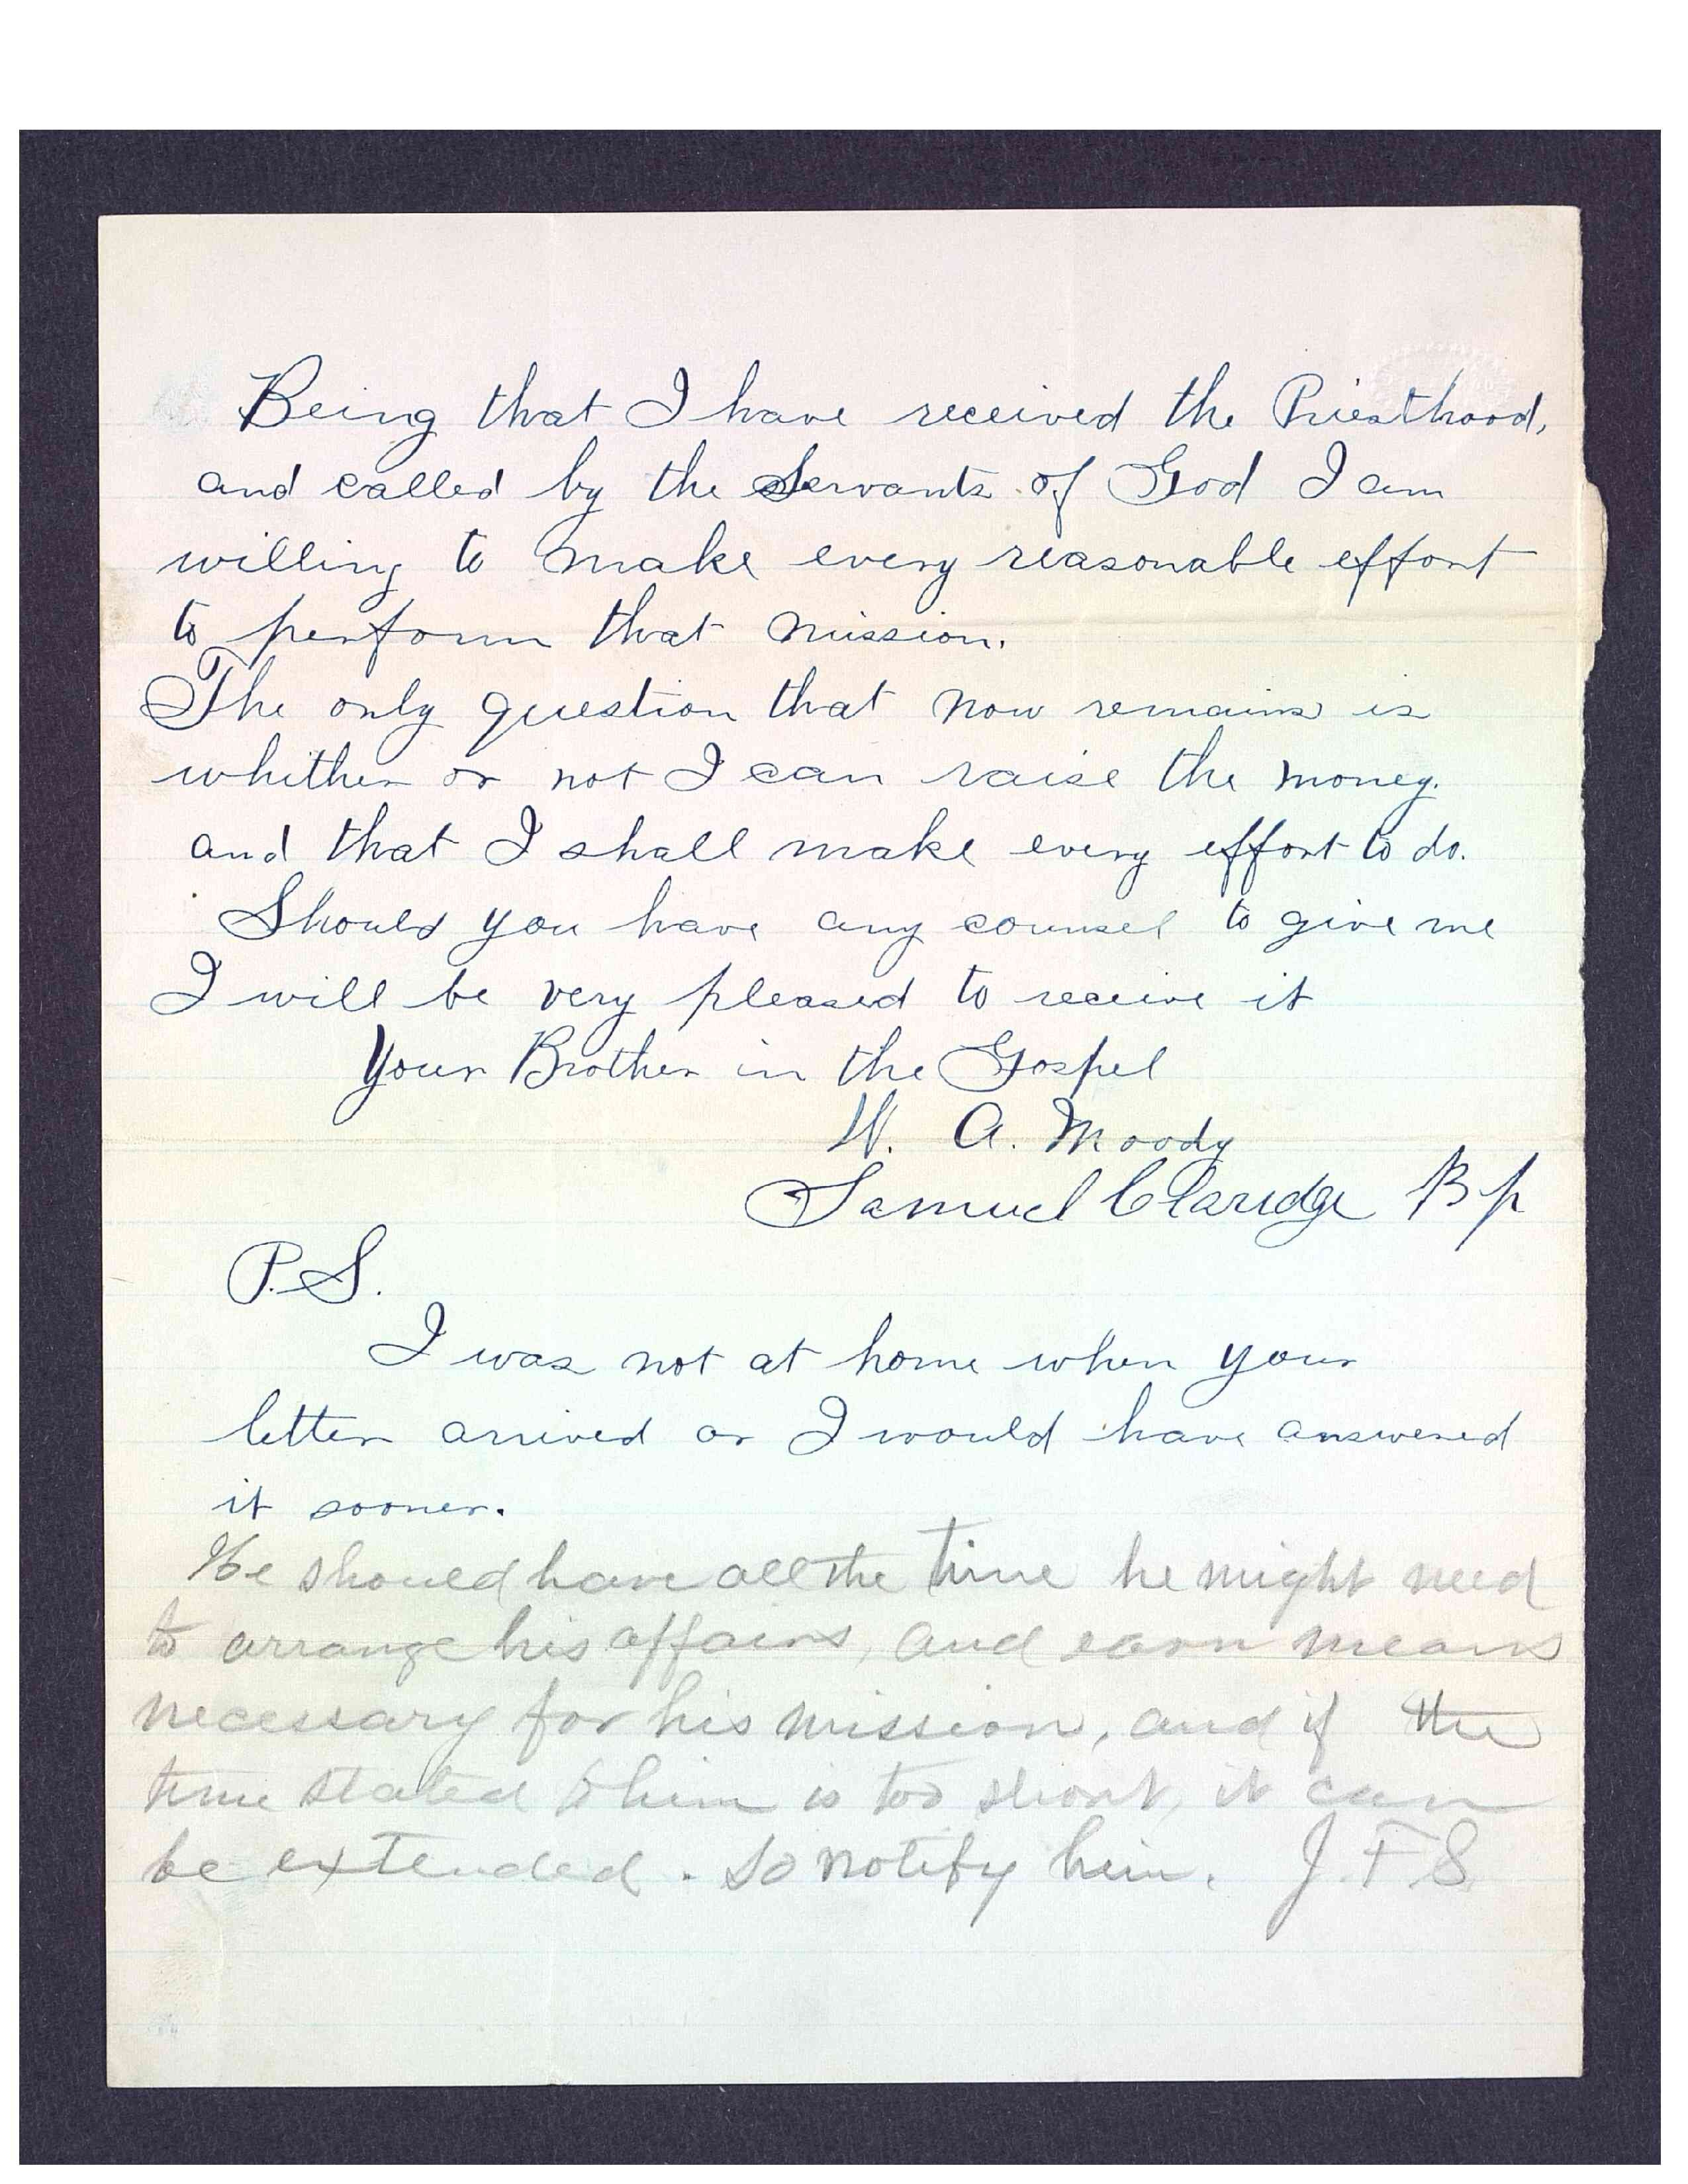 Being that I have received the Priesthood,
and called by the Servants of God I am
willing to make every reasonable effort
to perform that mission.
The only question that now remains is
whither or not I can raise the money.
and that I shall make every effort to do.
Should you have any counsel to give me
I will be very pleased to receive it
Your Brother in the Gospel
W. A. Moody
Samuel Claridge Bp
P.S.
I was not at home when your
letter arrived or I would have answered
it sooner.
He should have all the time he might need
to arrange his affairs, and earn means
necessary for his mission, and if the
time stated to him is too short, it can
be extended. So notify him. J. F. S